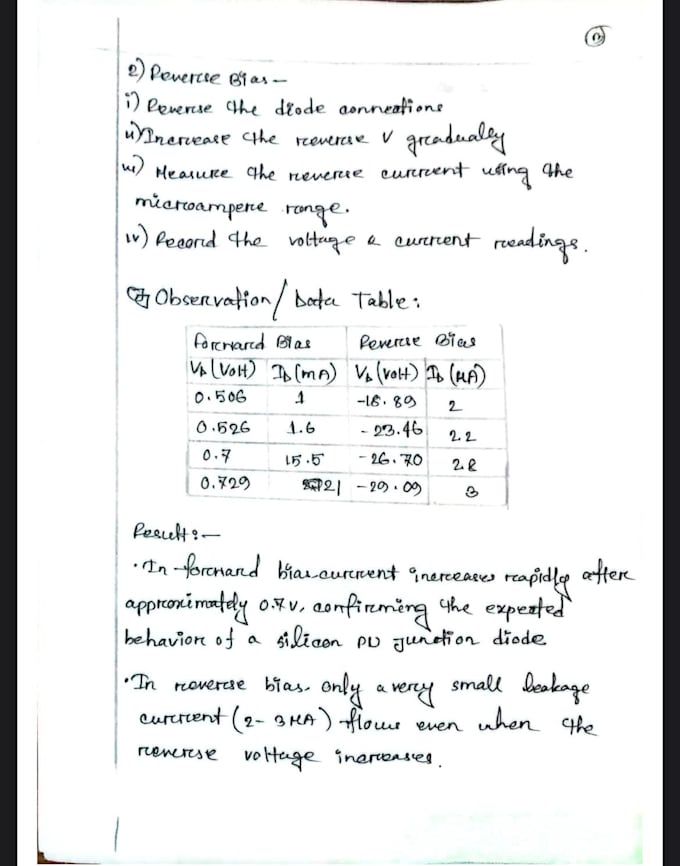 2) Reverse Bias –
i) Reverse the diode connections
ii) Increase the reverse V gradually
iii) Measure the reverse current using the
microampere range.
iv) Record the voltage & current readings.
Observation/Data Table:
Forward Bias Reverse Bias
Vb (Volt) Ib (mA) Vb (volt) Ib (μA)
0.506 1 -18.89 2
0.526 1.6 -23.46 2.2
0.7 15.5 -26.70 2.8
0.729 21 -29.09 3
Result:–
• In forward bias current increases rapidly after
approximately 0.7 V, confirming the expected
behavior of a silicon PN junction diode
• In reverse bias only a very small leakage
current (2-3 μA) flows even when the
reverse voltage increases.